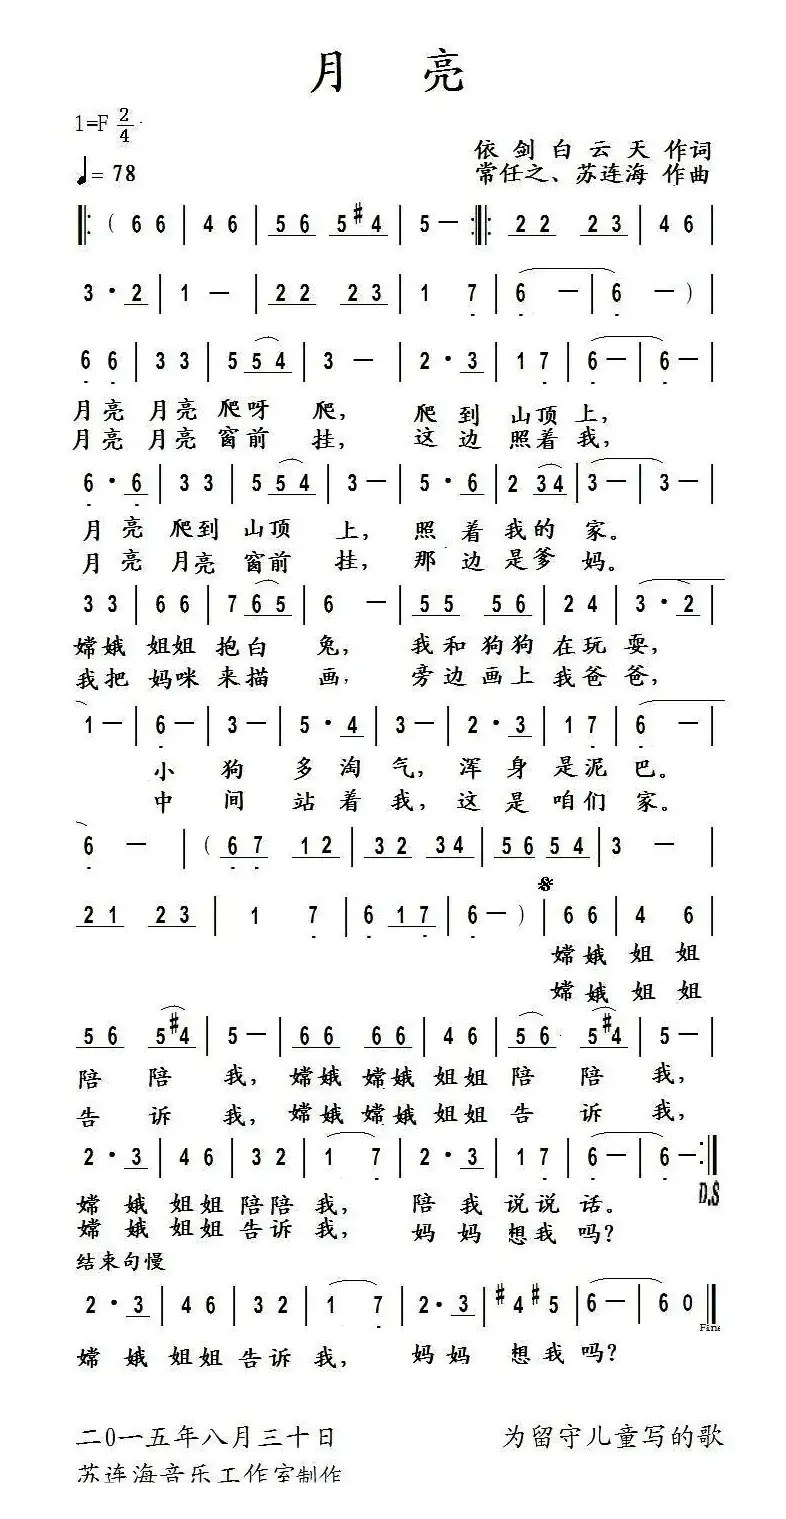 月 亮
1=F 2/4
♩= 78
依剑白云天作词
常任之、苏连海 作曲
‖: ( 6 6 | 4 6 | 5 6 5 #4 | 5 — :‖: 2 2 2 3 | 4 6 |
3 · 2 | 1 — | 2 2 2 3 | 1 7 | 6 — | 6 — ) |
6 6 | 3 3 | 5 5 4 | 3 — | 2 · 3 | 1 7 | 6 — | 6 — |
月亮 月亮 爬呀 爬, 爬到 山顶上,
月亮 月亮 窗前 挂, 这边 照着我,
6 · 6 | 3 3 | 5 5 4 | 3 — | 5 · 6 | 2 3 4 | 3 — | 3 — |
月亮 爬到 山顶 上, 照着我的家。
月亮 月亮 窗前 挂, 那边是爹妈。
3 3 | 6 6 | 7 6 5 | 6 — | 5 5 5 6 | 2 4 | 3 · 2 |
嫦娥 姐姐 抱白 兔, 我和狗狗 在玩耍,
我把 妈咪 来描 画, 旁边画上 我爸爸,
1 — | 6 — | 3 — | 5 · 4 | 3 — | 2 · 3 | 1 7 | 6 — |
小 狗 多淘气, 浑身是泥巴。
中 间 站着我, 这是咱们家。
6 — | ( 6 7 1 2 | 3 2 3 4 | 5 6 5 4 | 3 — |
𝄋
2 1 2 3 | 1 7 | 6 1 7 | 6 — ) | 6 6 | 4 6
嫦娥 姐姐
嫦娥 姐姐
5 6 5 #4 | 5 — | 6 6 6 6 | 4 6 | 5 6 5 #4 | 5 — |
陪 陪 我, 嫦娥 嫦娥 姐姐 陪 陪 我,
告 诉 我, 嫦娥 嫦娥 姐姐 告 诉 我,
2 · 3 | 4 6 | 3 2 | 1 7 | 2 · 3 | 1 7 | 6 — | 6 — :‖
D.S
嫦娥 姐姐 陪陪 我, 陪我 说说 话。
嫦娥 姐姐 告诉 我, 妈妈 想我 吗?
结束句慢
2 · 3 | 4 6 | 3 2 | 1 7 | 2 · 3 | #4 #5 | 6 — | 6 0 ‖
Fine
嫦娥 姐姐 告诉 我, 妈妈 想我 吗?
二0一五年八月三十日 为留守儿童写的歌
苏连海音乐工作室制作